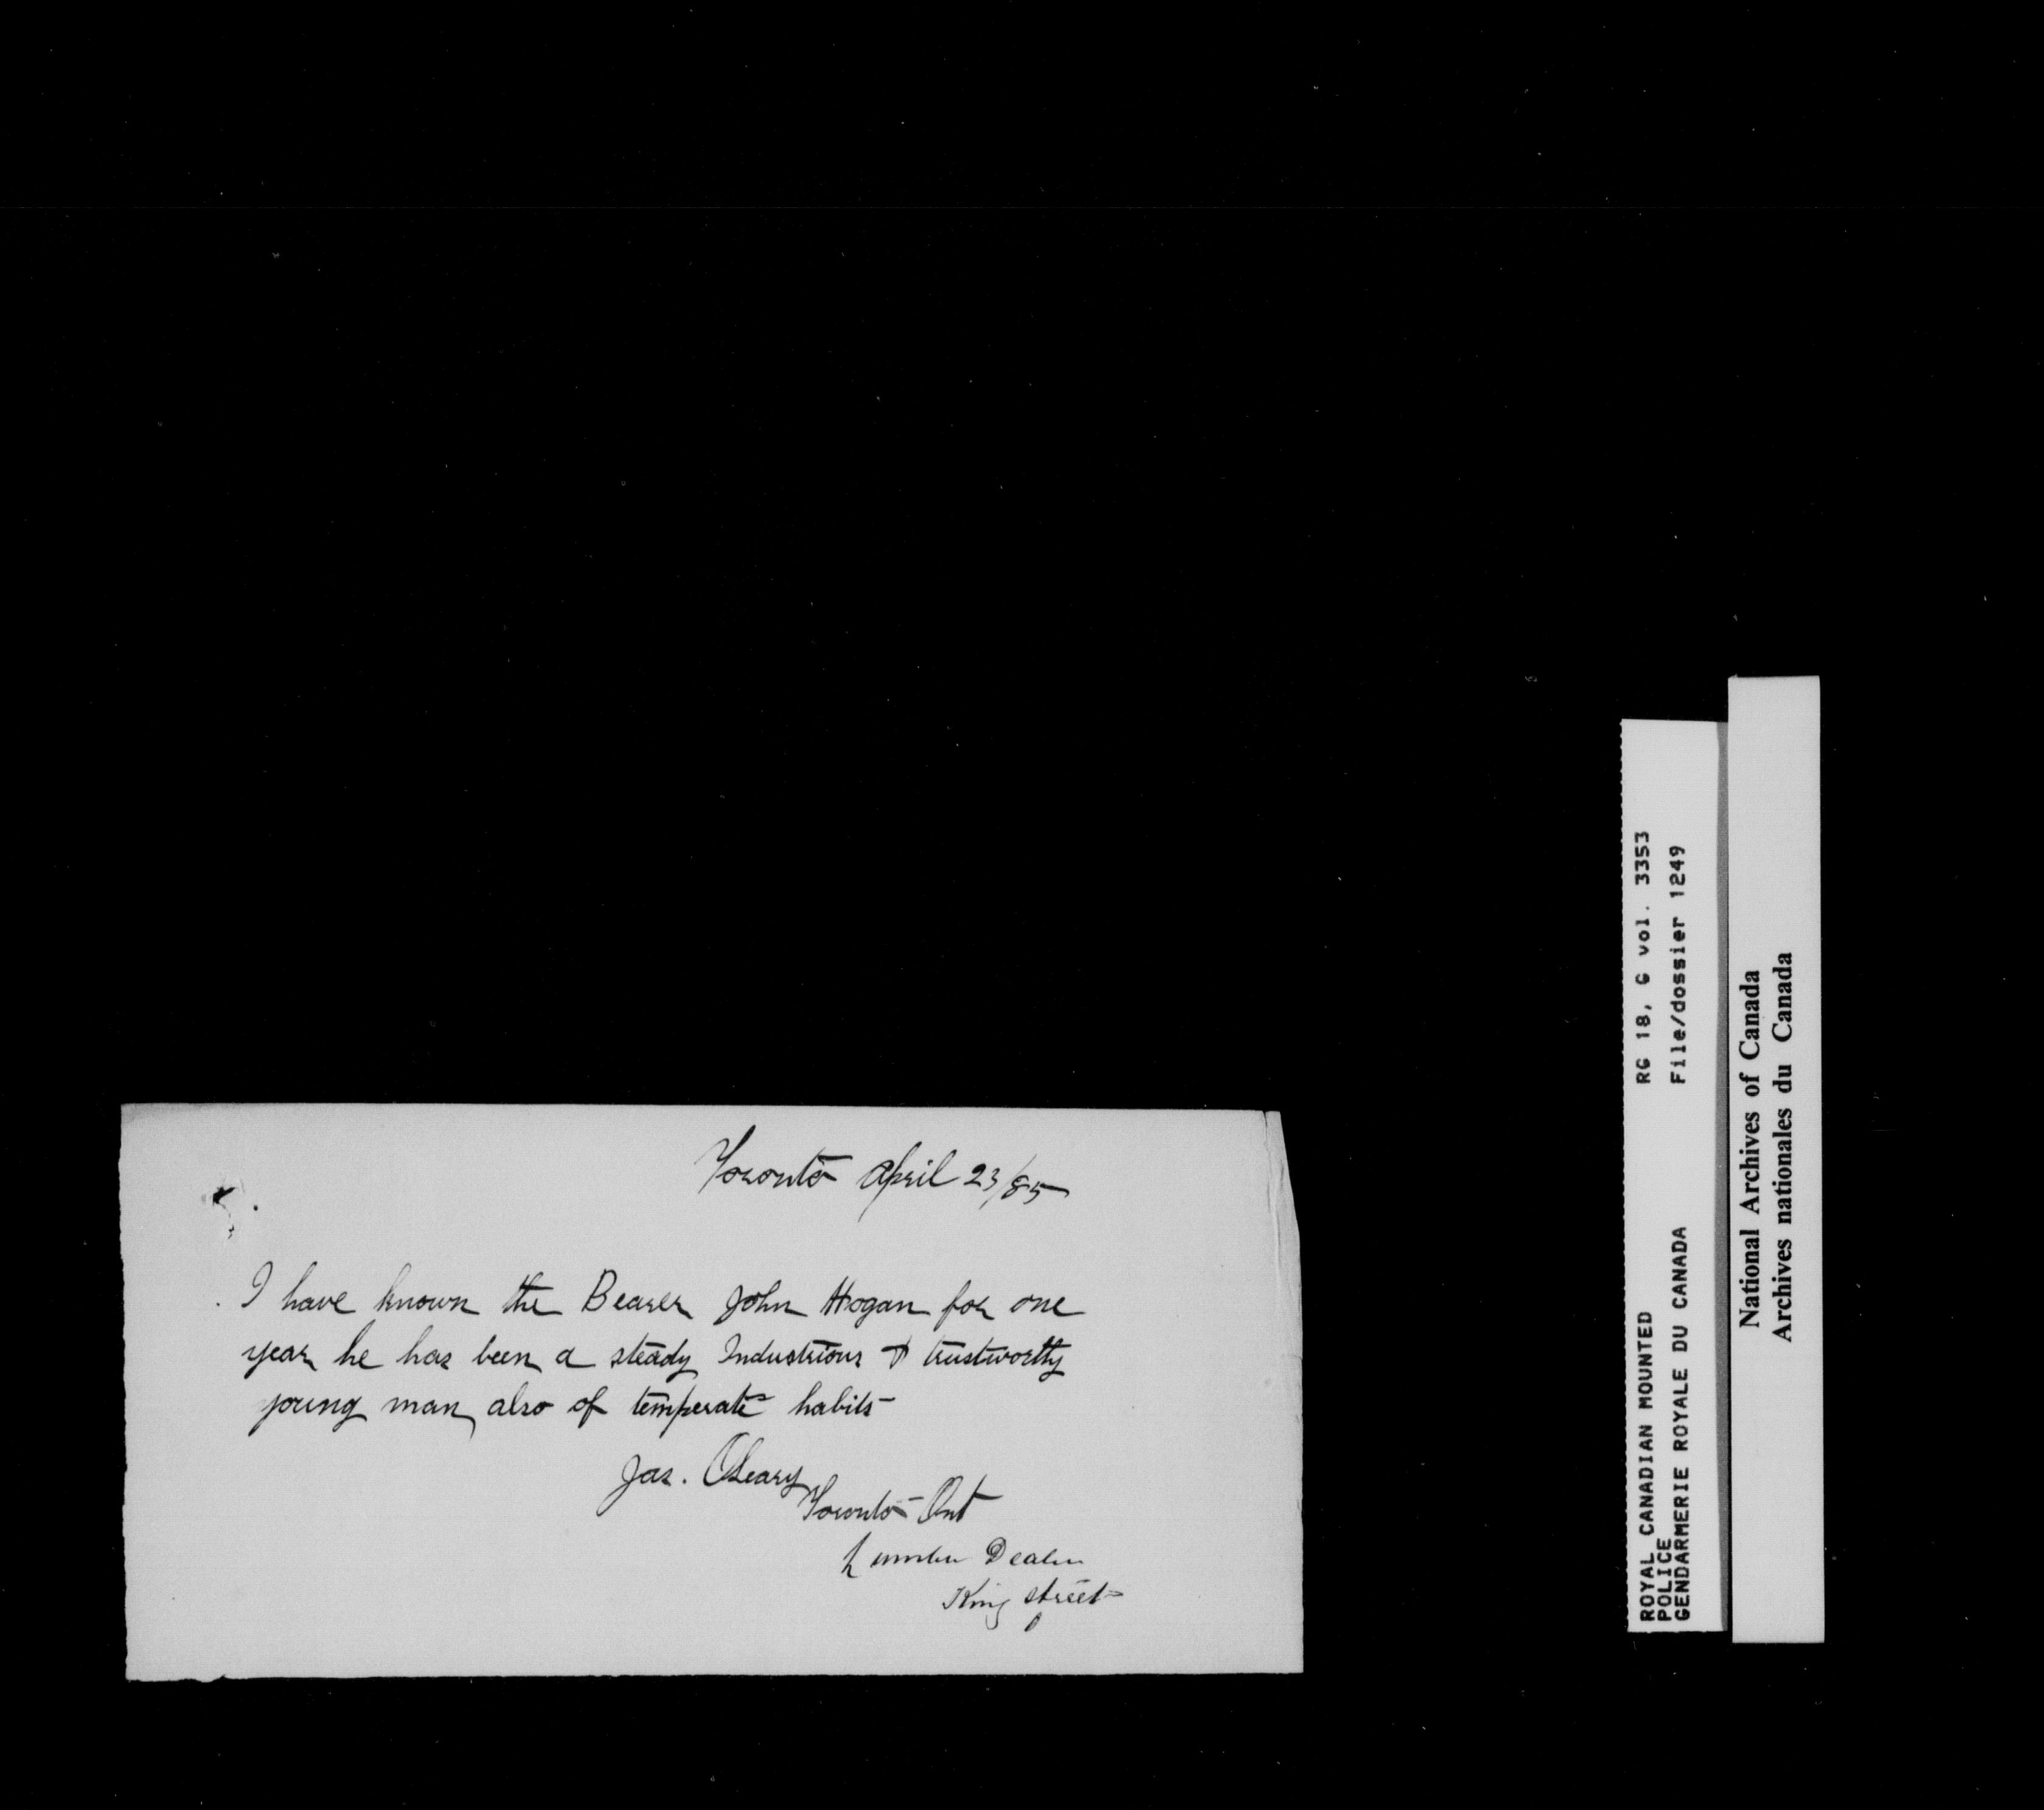 Toronto April 23/85
I have known the Bearer John Hogan for one
year he has been a steady Industrious & trustworthy
young man, also of temperate habits
Jas. OLeary
Toronto Ont
Lumber Dealer
King street
ROYAL CANADIAN MOUNTED RG 18, G vol. 3353
POLICE
GENDARMERIE ROYALE DU CANADA File/dossier 1249
National Archives of Canada
Archives nationales du Canada